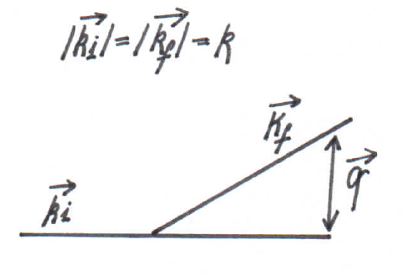 |k⃗i| = |k⃗f| = k
k⃗f
q⃗
k⃗i